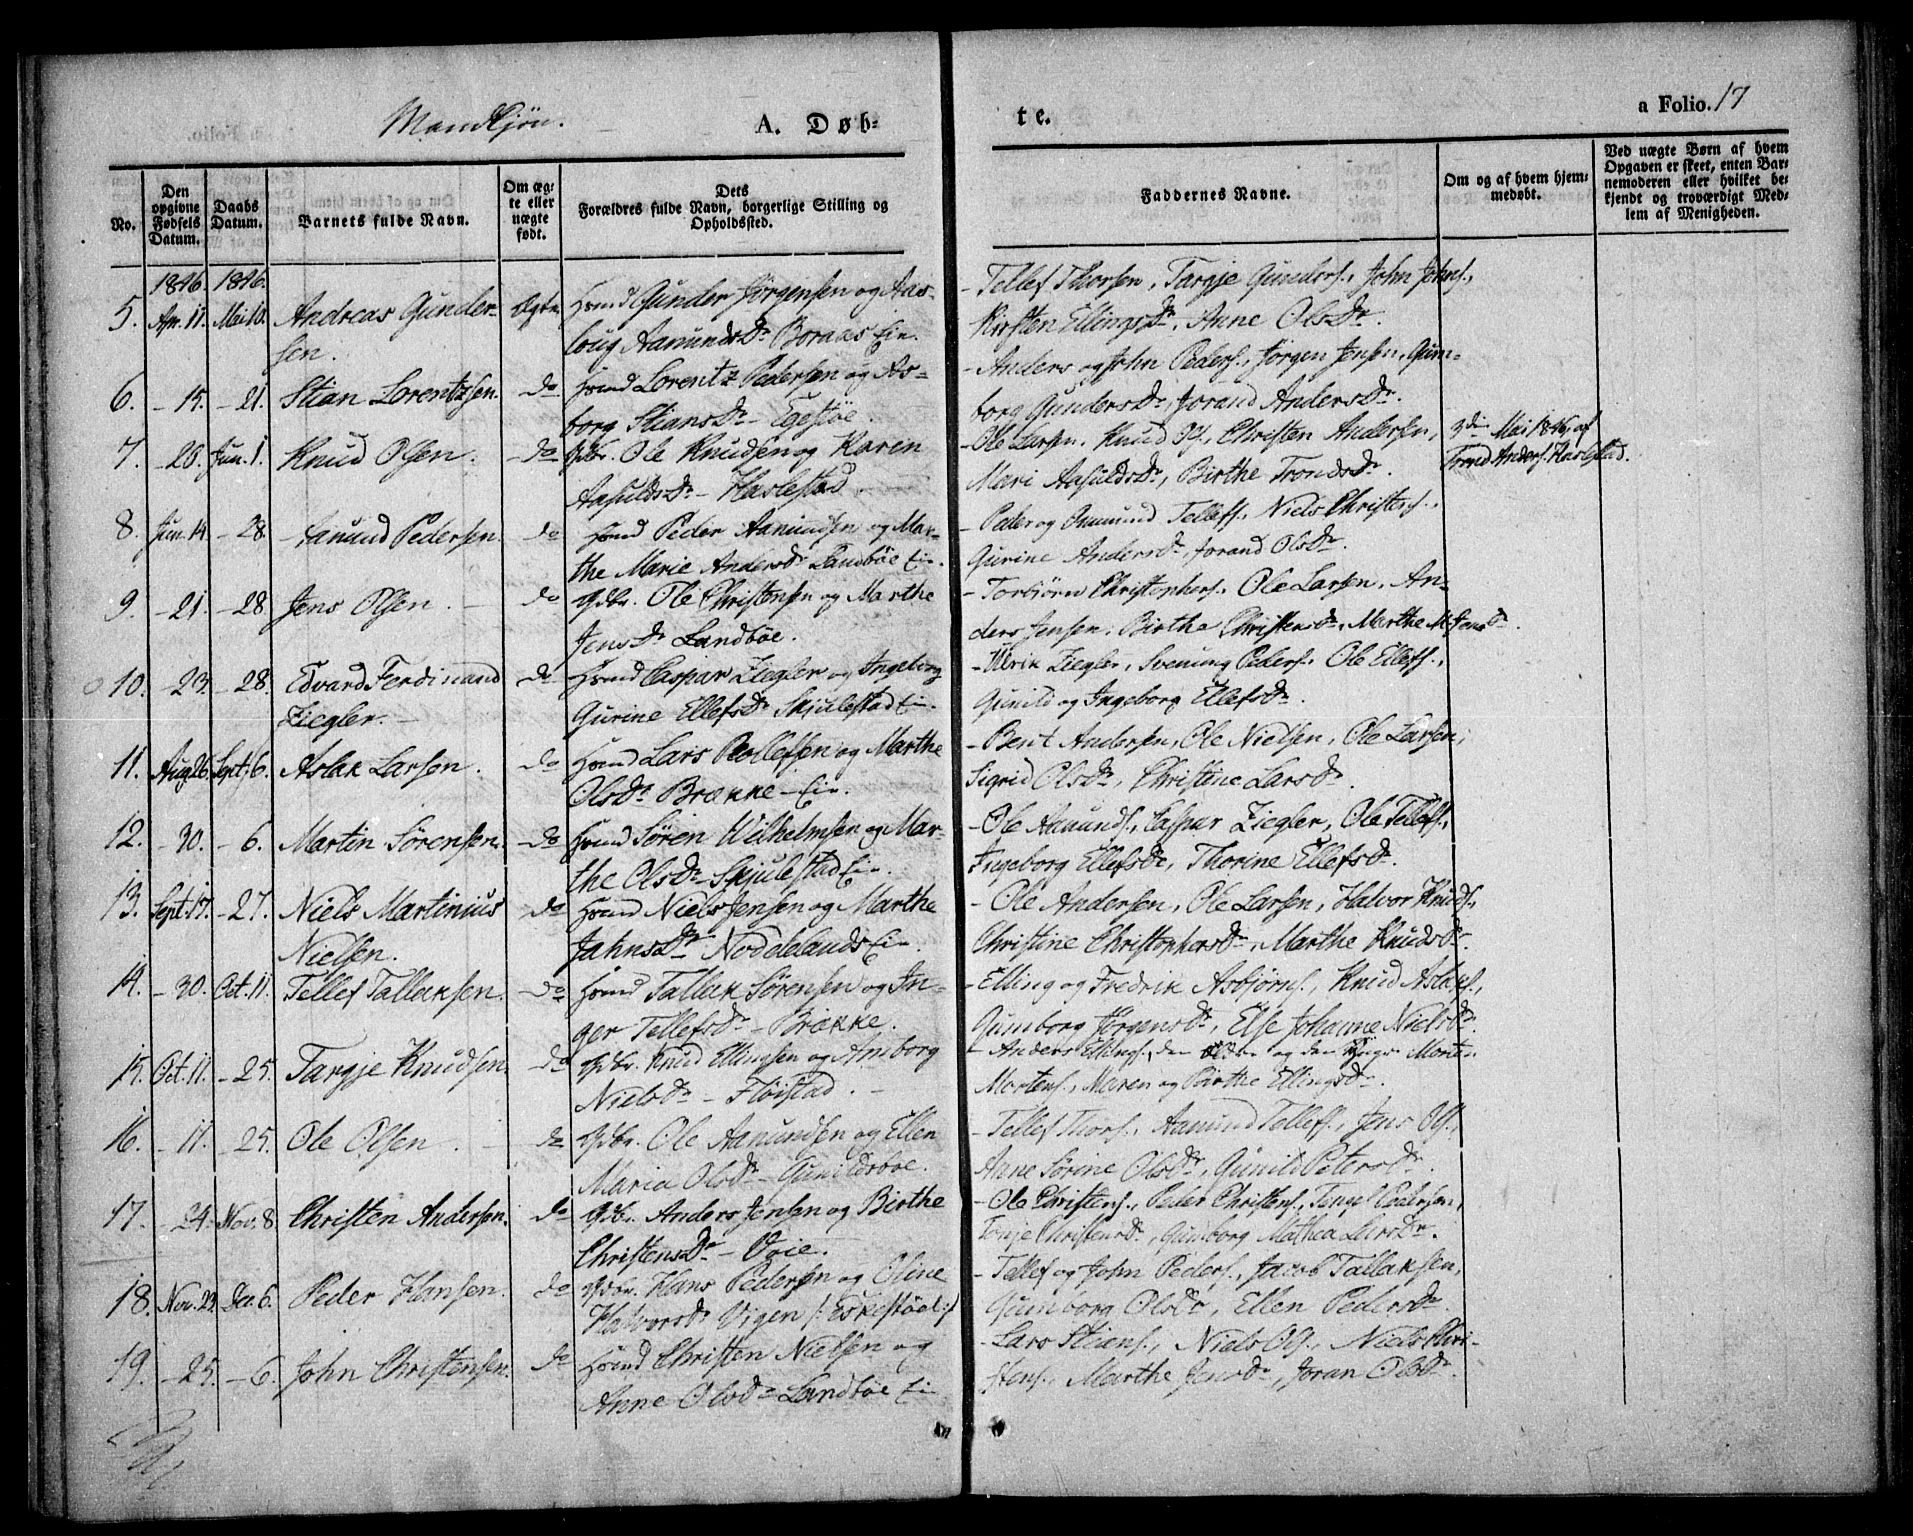 Mandkjøn.
A. Døb-
te.
a Folio. 17
No.
Den opgivne Fødsels Datum.
Daabs Datum.
Barnets fulde Navn.
Om ægte eller uægte født.
Dets
Forældres fulde Navn, borgerlige Stilling og
Opholdssted.
Faddernes Navne.
Om og af hvem hjem-
medøbt.
Ved uægte Børn af hvem
Opgaven er skeet, enten Bar-
nemoderen eller hvilket be-
kjendt og troværdigt Med-
lem af Menigheden.
1846 1846.
5. Apr. 11. Mai 10. Andreas Gunder-
sen. Ægte
Hmd Gunder Jørgensen og Aas-
loug Aanunds Dr Boraas Ein.
- Tellef Thorsen, Targje Gunders., John Johns.,
Kirsten Ellings Dr, Anne Ols Dr.
6. - 15. - 21. Stian Lorentzsen. do
Hmd Lorentz Pedersen og As-
borg Stians Dr - Egestøe.
- Anders og John Peders., Jørgen Jensen, Gum-
borg Gunders Dr, Jorand Anders Dr.
7. - 26. Jun. 1. Knud Olsen. do
Gdbr. Ole Knudsen og Karen
Aasulds Dr - Haslestad.
- Ole Larsen. Knud Ols., Christen Andersen,
Mari Aasulds Dr, Birthe Tronds Dr.
3die Mai 1846, af
Trond Anders. Haslestad.
8. Jun. 14 - 28. Aanund Pedersen do
Hmd Peder Aanundsen og Mar-
the Marie Anders Dr Landbøe Ein.
- Peder og Omund Tellefs., Niels Christens.,
Gurine Anders Dr, Jorand Ols Dr.
9. - 21. - 28 Jens Olsen. do
Gdbr. Ole Christensen og Marthe
Jens Dr Landbøe.
- Torbjørn Christophers., Ole Larsen, An-
ders Jensen, Birthe Christens Dr, Marthe M. Jens Dr.
10. - 23. - 28. Edvard Ferdinand
Ziegler. do
Hmd Caspar Ziegler og Ingeborg
Gurine Ellefs Dr Skjulestad Ein.
- Ulrik Ziegler, Svenung Peders., Ole Ellefs.,
Gunild og Ingeborg Ellefs Dr.
11. Aug. 26. Sept. 6. Aslak Larsen. do
Hmd Lars Rollefsen og Marthe
Ols Dr Brække - Ein.
- Bent Andersen, Ole Nielsen, Ole Larsen,
Sigrid Ols Dr, Christine Lars Dr.
12. - 30. - 6. Martin Sørensen. do
Hmd Søren Wilhelmsen og Mar-
the Ols Dr - Skjulestad Ein.
- Ole Aanunds., Caspar Ziegler, Ole Tellefs.,
Ingeborg Ellefs Dr, Thorine Ellefs Dr.
13. Sept. 17. - 27. Niels Martinius
Nielsen. do
Hmd Niels Jensen og Marthe
Jahns Dr Noddelands Ein.
- Ole Andersen, Ole Larsen, Halvor Knuds.,
Christine Christophers Dr, Marthe Knuds Dr.
14. - 30. Oct. 11. Tellef Tallaksen. do
Hmd Tallak Sørensen og In-
ger Tellefs Dr - Brække.
- Elling og Fredrik Asbjørns., Knud Aslaks.,
Gumborg Jørgens Dr, Else Johanne Niels Dr.
15. Oct. 11. - 25. Targje Knudsen. do
Gdbr. Knud Ellingsen og Anborg
Niels Dr - Fløistad.
- Anders Ellings., den ældre og den yngre Morten
Mortens., Maren og Birthe Ellings Dr.
16. - 11. - 25. Ole Olsen. do
Gdbr. Ole Aanundsen og Ellen
Maria Ols Dr - Gunildsboe.
- Tellef Thors., Aamund Tellefs., Jens Ols.,
Anne Sørine Ols Dr, Gunild Peters Dr.
17. - 24. Nov. 8. Christen Andersen. do
Gdbr. Anders Jensen og Birthe
Christens Dr - Voie.
- Ole Christens., Peder Christens., Tarjei Pedersen,
Tonje Christens Dr, Gumborg Mathea Lars Dr.
18. Nov. 23. Dec. 6. Peder Hansen. do
Gdbr. Hans Pedersen og Oline
Halvors Dr Vigen /: Eskestøel :/
- Tellef og John Peders., Jacob Tallaksen,
Gumborg Ols Dr, Ellen Peders Dr.
19. - 25. - 6. John Christensen. do
Hmd Christen Nielsen og
Anne Ols Dr Landbøe Ein
- Lars Stians., Niels Ols., Niels Chri-
stens., Marthe Jens Dr, Joran Ols Dr.